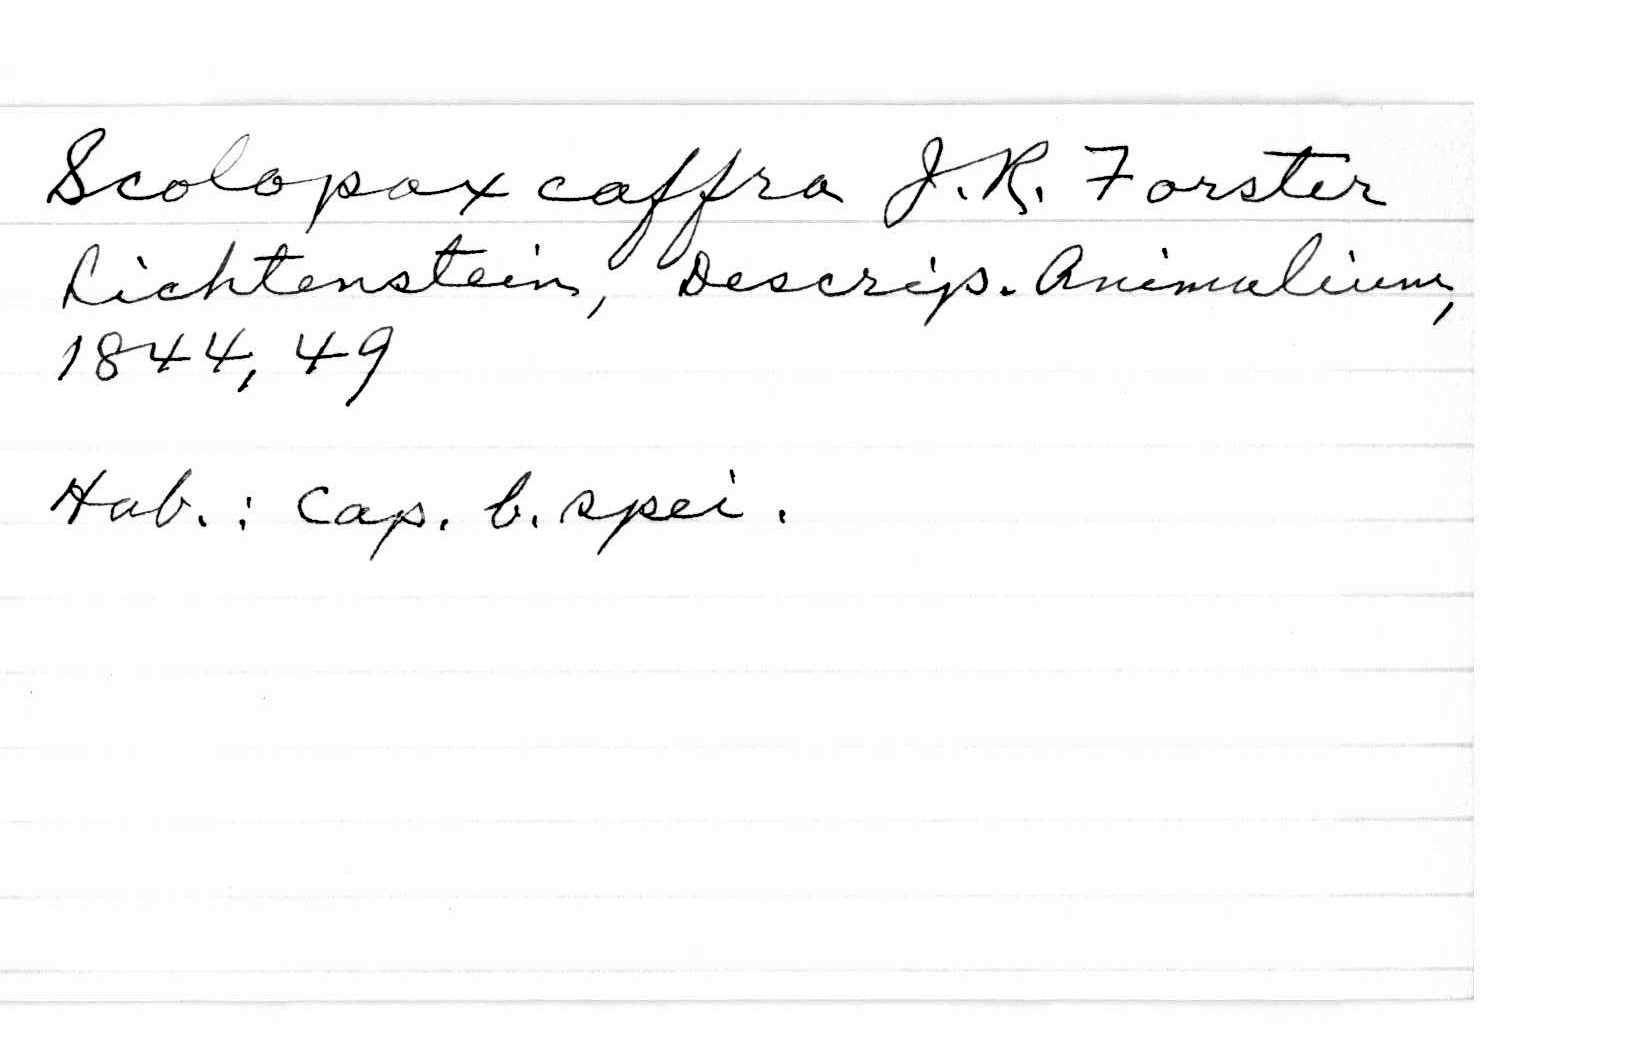 Scolopax caffra J.R. Forster
Lichtenstein, Descrip. Animalium,
1844, 49
Hab.: Cap. b. spei.